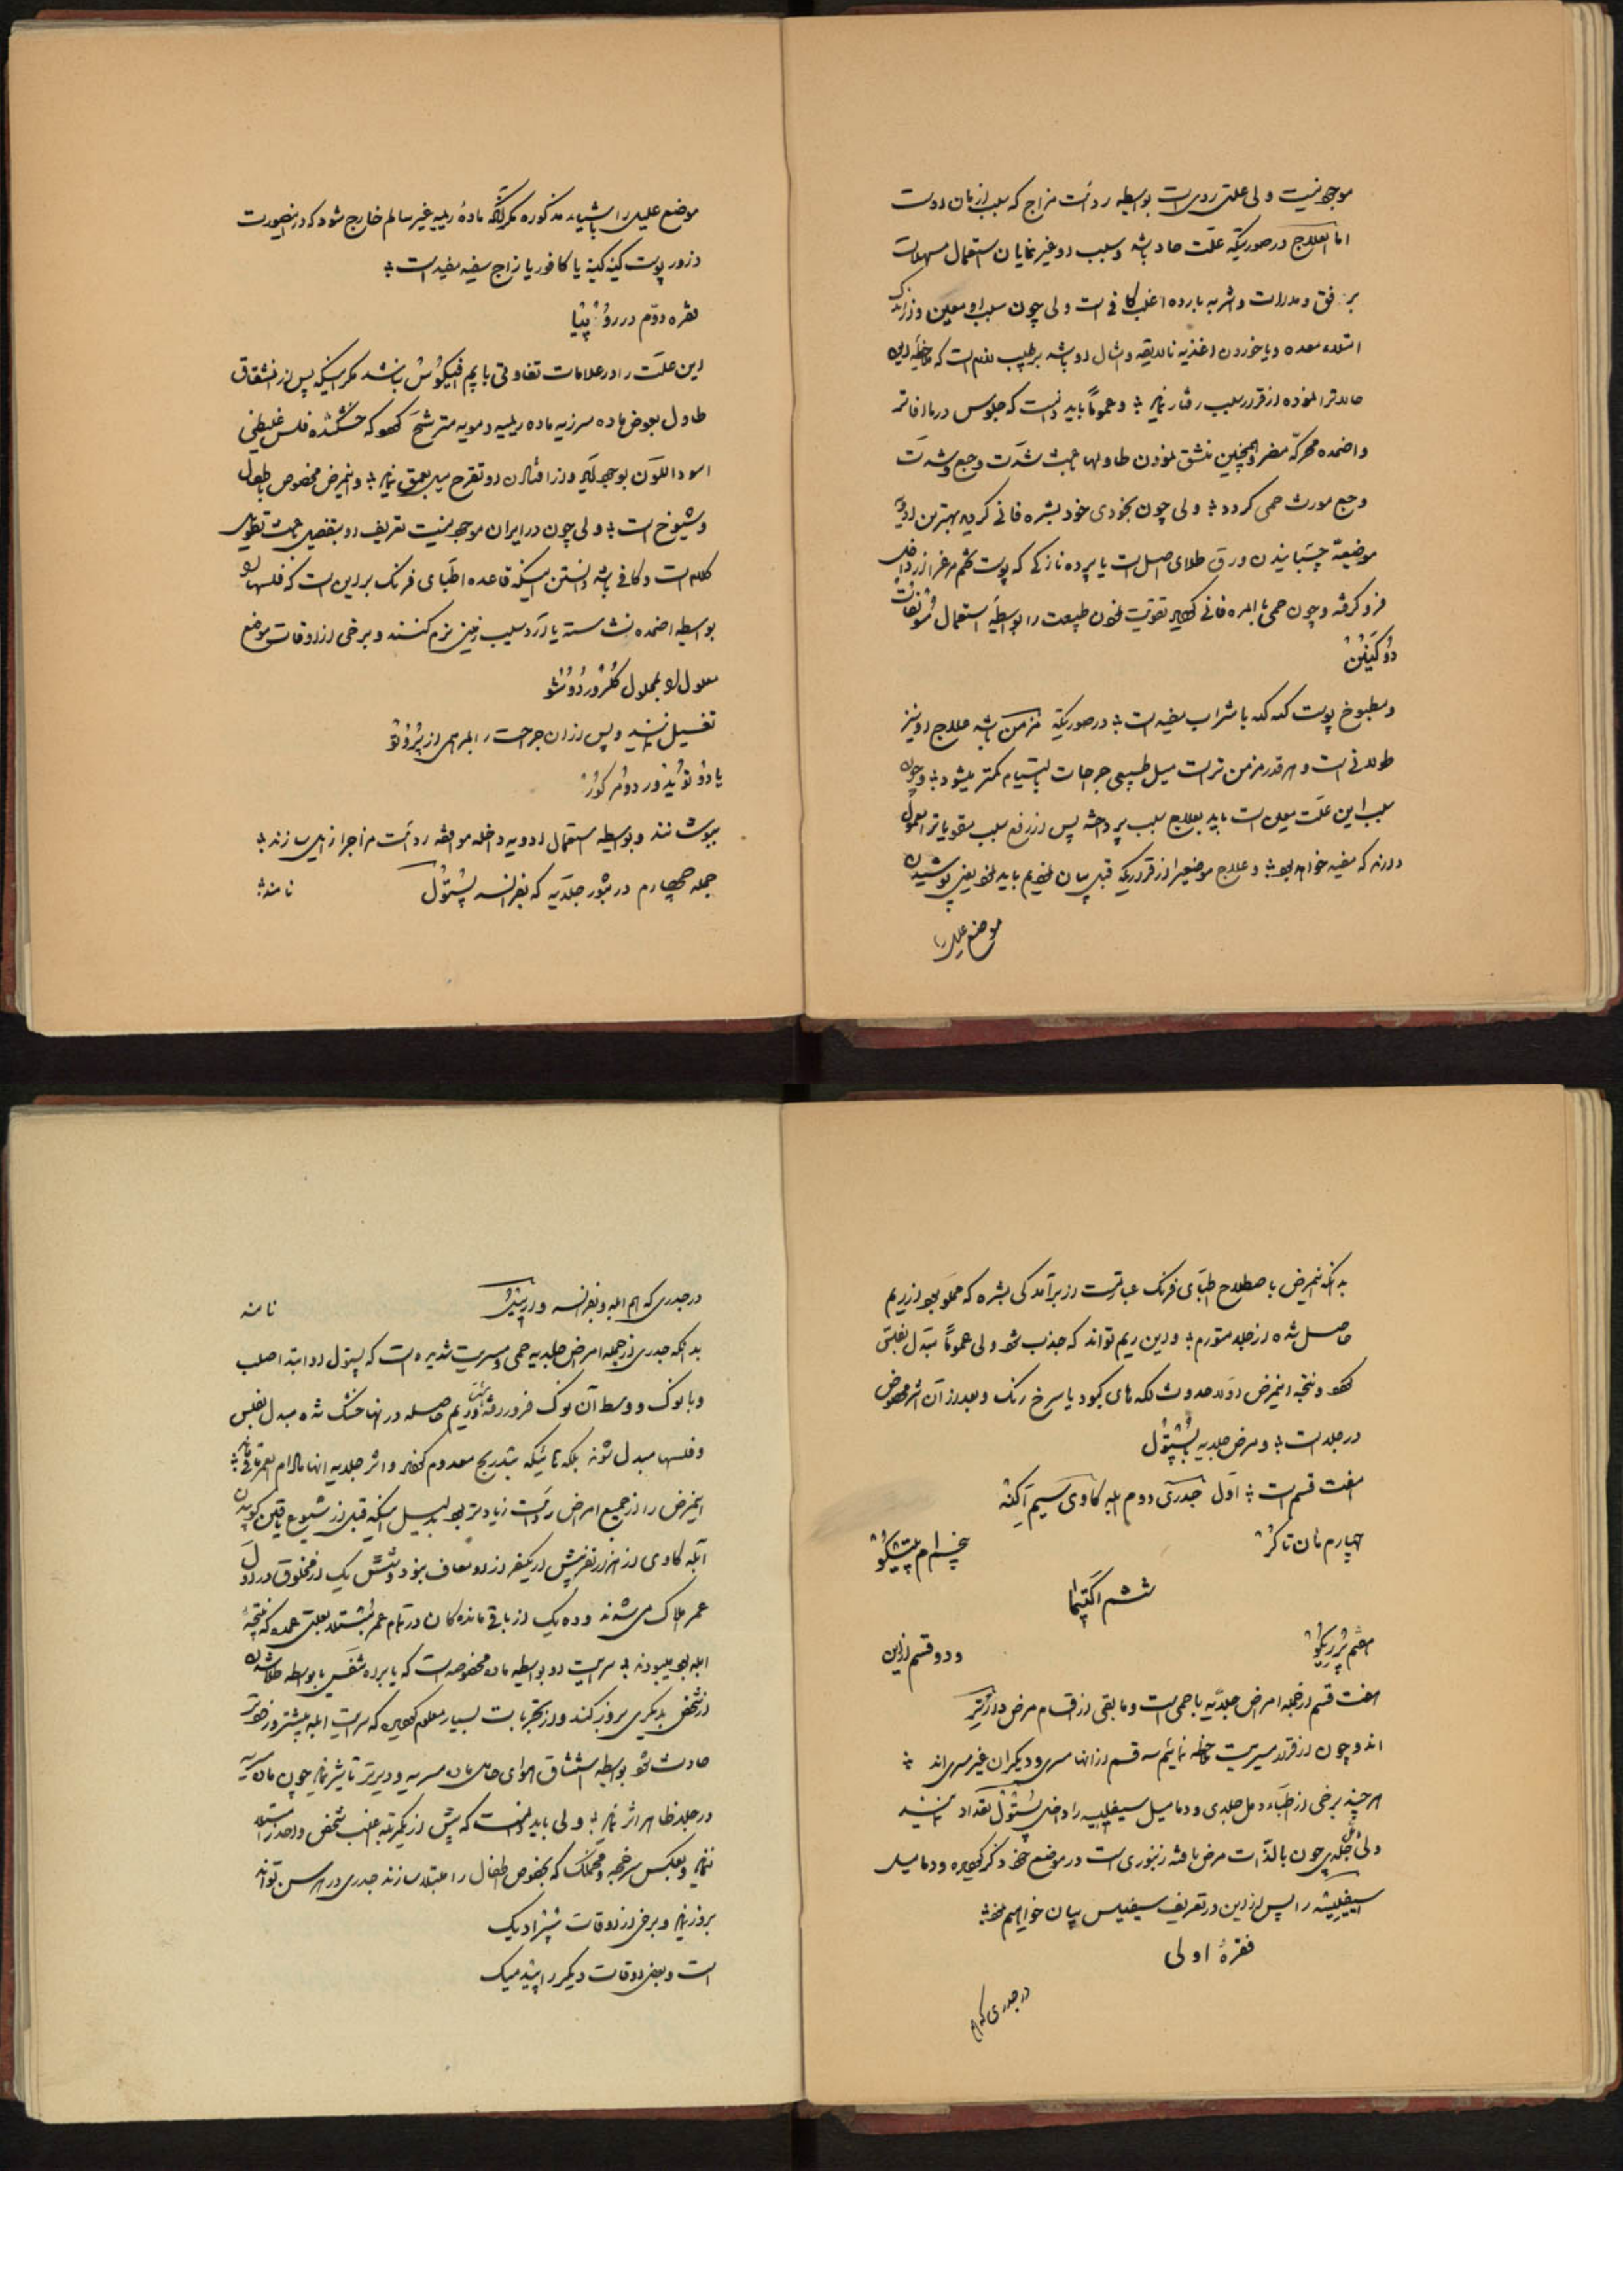 موجود نیست ولی علتی ردی است بواسطه ردائت مزاج که سبب از مان اوست
اما العلاج در صورتیکه علت حاد باشد و سبب او غیر نمایان استعمال مسهلات
برفق و مدرات و اشربه بارده اغلب کافی است ولی چون سبب او معین و از
امتلاء معده و یا خوردن اغذیه نالایقه و امثال او باشد بر طبیب لازم است که ملاحظه این
حالات را نموده از قرار سبب رفتار نماید و عموماً باید دانست که جلوس در ماء فاتر
و اضمده محرکه مضر و همچنین منشق نمودن طاولها باعث شدت وجع و شدت
وجع مورث حمی گردد ولی چون بخودی خود بشره فانی گردید بهترین ادویه
موضعیه چسبانیدن ورق طلای اصل است یا پرده نازکی که پوست تخم مرغ را از داخل
فرو گرفته و چون حمی بالمره فانی گردید تقویت نمودن طبیعت را بواسطه استعمال سولفات
دو کینین
و مطبوخ پوست کنه کنه با شراب مفید است در صورتیکه مزمن باشد علاج او نیز
طولانی است و هر قدر مزمن تر است میل طبیعی جراحات بالتیام کمتر میشود و چون
سبب این علت معین است باید بعلاج سبب پرداخته پس از رفع سبب مقویات را معمول
دارند که مفید خواهد بود و علاج موضعی را از قراریکه قبل بیان نمودیم باید نمود یعنی پوشیدن
موضع علیل را
موضع علیل را باشیاء مذکوره مگر آنکه ماده ریمیه غیر سالم خارج شود که در اینصورت
ذرور پوست کینه کینه یا کافور یا زاج سفید مفید است
فقره دوم در روپیا
این علت را در علامات تفاوتی با پمفیگوس نباشد مگر اینکه پس از انشقاق
طاول بعوض ماده سرزیه ماده ریمیه و مویه مترشح گردد که خشکشده فلس غلیظی
اسود اللون بوجود آید و از افتادن او تقرح میل بعمق نماید و این مرض مخصوص باطفال
و شیوخ است ولی چون در ایران موجود نیست تعریف او بتفصیل باعث تطویل
کلام است و کافی باشد دانستن اینکه قاعده اطبای فرنگ بر این است که فلسها را
بواسطه اضمده نشاسته یا آرد سیب زمین نرم کنند و برخی از اوقات موضع
معلول را بمحلول کلرور دو سود
تغسیل نمایند و پس از ان جراحت را بمرهمی از پرتو
یا دو تو یدور دو مرکور
بپوشانند و بواسطه استعمال ادویه داخله موافقه ردائت مزاج را زایل سازند
جمله چهارم در بثور جلدیه که بفرانسه پستول نامند
بدانکه اینمرض باصطلاح اطبای فرنگ عبارتست از برآمدگی بشره که مملو بود از ریم
حاصل شده از جلد متورم و این ریم تواند که جذب شود ولی عموماً مبدل بفلس
گردد و نتیجه اینمرض اولا حدوث لکه های کبود یا سرخ رنگ و بعد از آن اثر مخصوص
در جلد است و مرض جلدیه پستول
هفت قسم است اول جدری دوم ابله کاوی سیم آکنه
چهارم مان تاکر پنجم امپتیگو
ششم اکتیما
هفتم پرریگو و دو قسم از این
هفت قسم از جمله امراض جلدیه با حمی است و مابقی از اقسام مرض
اند و چون از قرار مسریت ملاحظه نمائیم سه قسم از انها مسری و دیگران غیر مسری اند
هر چند برخی از اطباء دمل جلدی و دمامیل سیفلیسیه را داخل پستول تعداد نمایند
ولی دمل جلدی چون بالذات مرض بافته زنبوری است در موضع خود ذکر گردیده و دمامیل
سیفلیسیه را پس از این در تعریف سیفلیس بیان خواهیم نمود
فقرهٔ اولی
در جدری که ام
در جدری که ام ابله و بفرانسه وریول نامند
بدانکه جدری از جمله امراض جلدیه حمی و مسریت شدیده است که پستول او ابتدا صلب
و با نوک و وسط آن نوک فرورفته و ریم حاصله در انها خشک شده مبدل بفلس
و فلسها مبدل نشوند بلکه تمامیکه بتدریج معدوم گردد و اثر جلدیه انها مادام العمر باقی
اینمرض را از جمیع امراض ردائت زیادتر بود بدلیل اینکه قبل از شیوع یافتن کوبیدن
آبله کاوی از هزار نفر بیش از یکنفر از او معاف نبود و شش یک از مخلوق در اول
عمر هلاک می شدند و ده یک از باقی مانده کان در تمام عمر مبتلا بعلتی عمده که نتیجهٔ
ابله بود میبودند سرایت او بواسطه ماده مخصوصه است که یا بر ده تنفس یا بواسطه ملامسه
از شخص بدیگری بروز کند و از تجربیات بسیار معلوم گردیده که سرایت ابله بیشتر در صورت
حادث شود بواسطه استنشاق هوای حامل ماده مسریه و دیرتر تاثیر نماید چون ماده مسریه
در جلد ظاهر اثر نماید ولی باید دانست که بیش از یکمرتبه اغلب شخص واحد را مبتلا
ننماید و بعکس سرخجه و مخملک که بخصوص اطفال را مبتلا سازند جدری در هر سن تواند
بروز نماید و برخی از اوقات سپرادیک
است و بعضی اوقات دیگر اپیدمیک